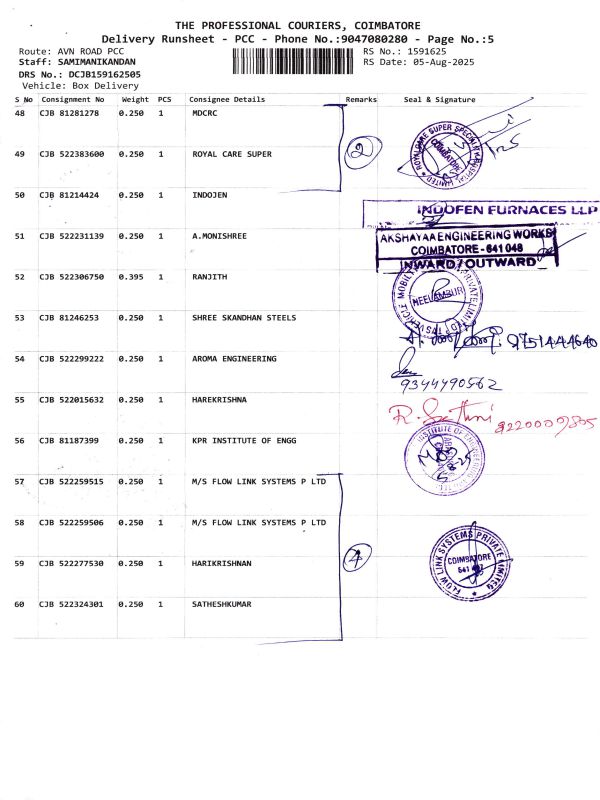 THE PROFESSIONAL COURIERS, COIMBATORE
Delivery Runsheet - PCC - Phone No.:9047080280 - Page No.:5
Route: AVN ROAD PCC
RS No.: 1591625
Staff: SAMIMANIKANDAN
RS Date: 05-Aug-2025
DRS No.: DCJB159162505
Vehicle: Box Delivery
S No Consignment No Weight PCS Consignee Details Remarks Seal & Signature
48 CJB 81281278 0.250 1 MDCRC
49 CJB 522383600 0.250 1 ROYAL CARE SUPER 2
ROYALCARE SUPER SPECIALITY HOSPITAL LIMITED
COIMBATORE
50 CJB 81214424 0.250 1 INDOJEN
INDOFEN FURNACES LLP
51 CJB 522231139 0.250 1 A.MONISHREE
AKSHAYAA ENGINEERING WORKS
COIMBATORE - 641 048
INWARD / OUTWARD
52 CJB 522306750 0.395 1 RANJITH
VEHICLE MOBILITY PRIVATE LIMITED
NEELAMBUR
53 CJB 81246253 0.250 1 SHREE SKANDHAN STEELS
9751444640
54 CJB 522299222 0.250 1 AROMA ENGINEERING
9344490562
55 CJB 522015632 0.250 1 HAREKRISHNA
R. Sathni
56 CJB 81187399 0.250 1 KPR INSTITUTE OF ENGG
INSTITUTE OF ENGINEERING
57 CJB 522259515 0.250 1 M/S FLOW LINK SYSTEMS P LTD
58 CJB 522259506 0.250 1 M/S FLOW LINK SYSTEMS P LTD
59 CJB 522277530 0.250 1 HARIKRISHNAN 4
FLOW LINK SYSTEMS PRIVATE LIMITED
COIMBATORE
60 CJB 522324301 0.250 1 SATHESHKUMAR